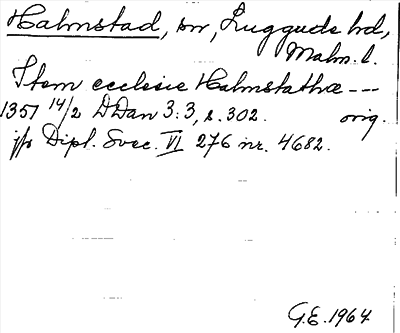 Halmstad, sn, Luggude hd,
Malm. l.
Item ecclesie Halmstathæ ---
1357 14/2 DDan 3:3, s. 302. orig.
jfr Dipl. Svec. VI 276 nr. 4682.
G.E. 1964